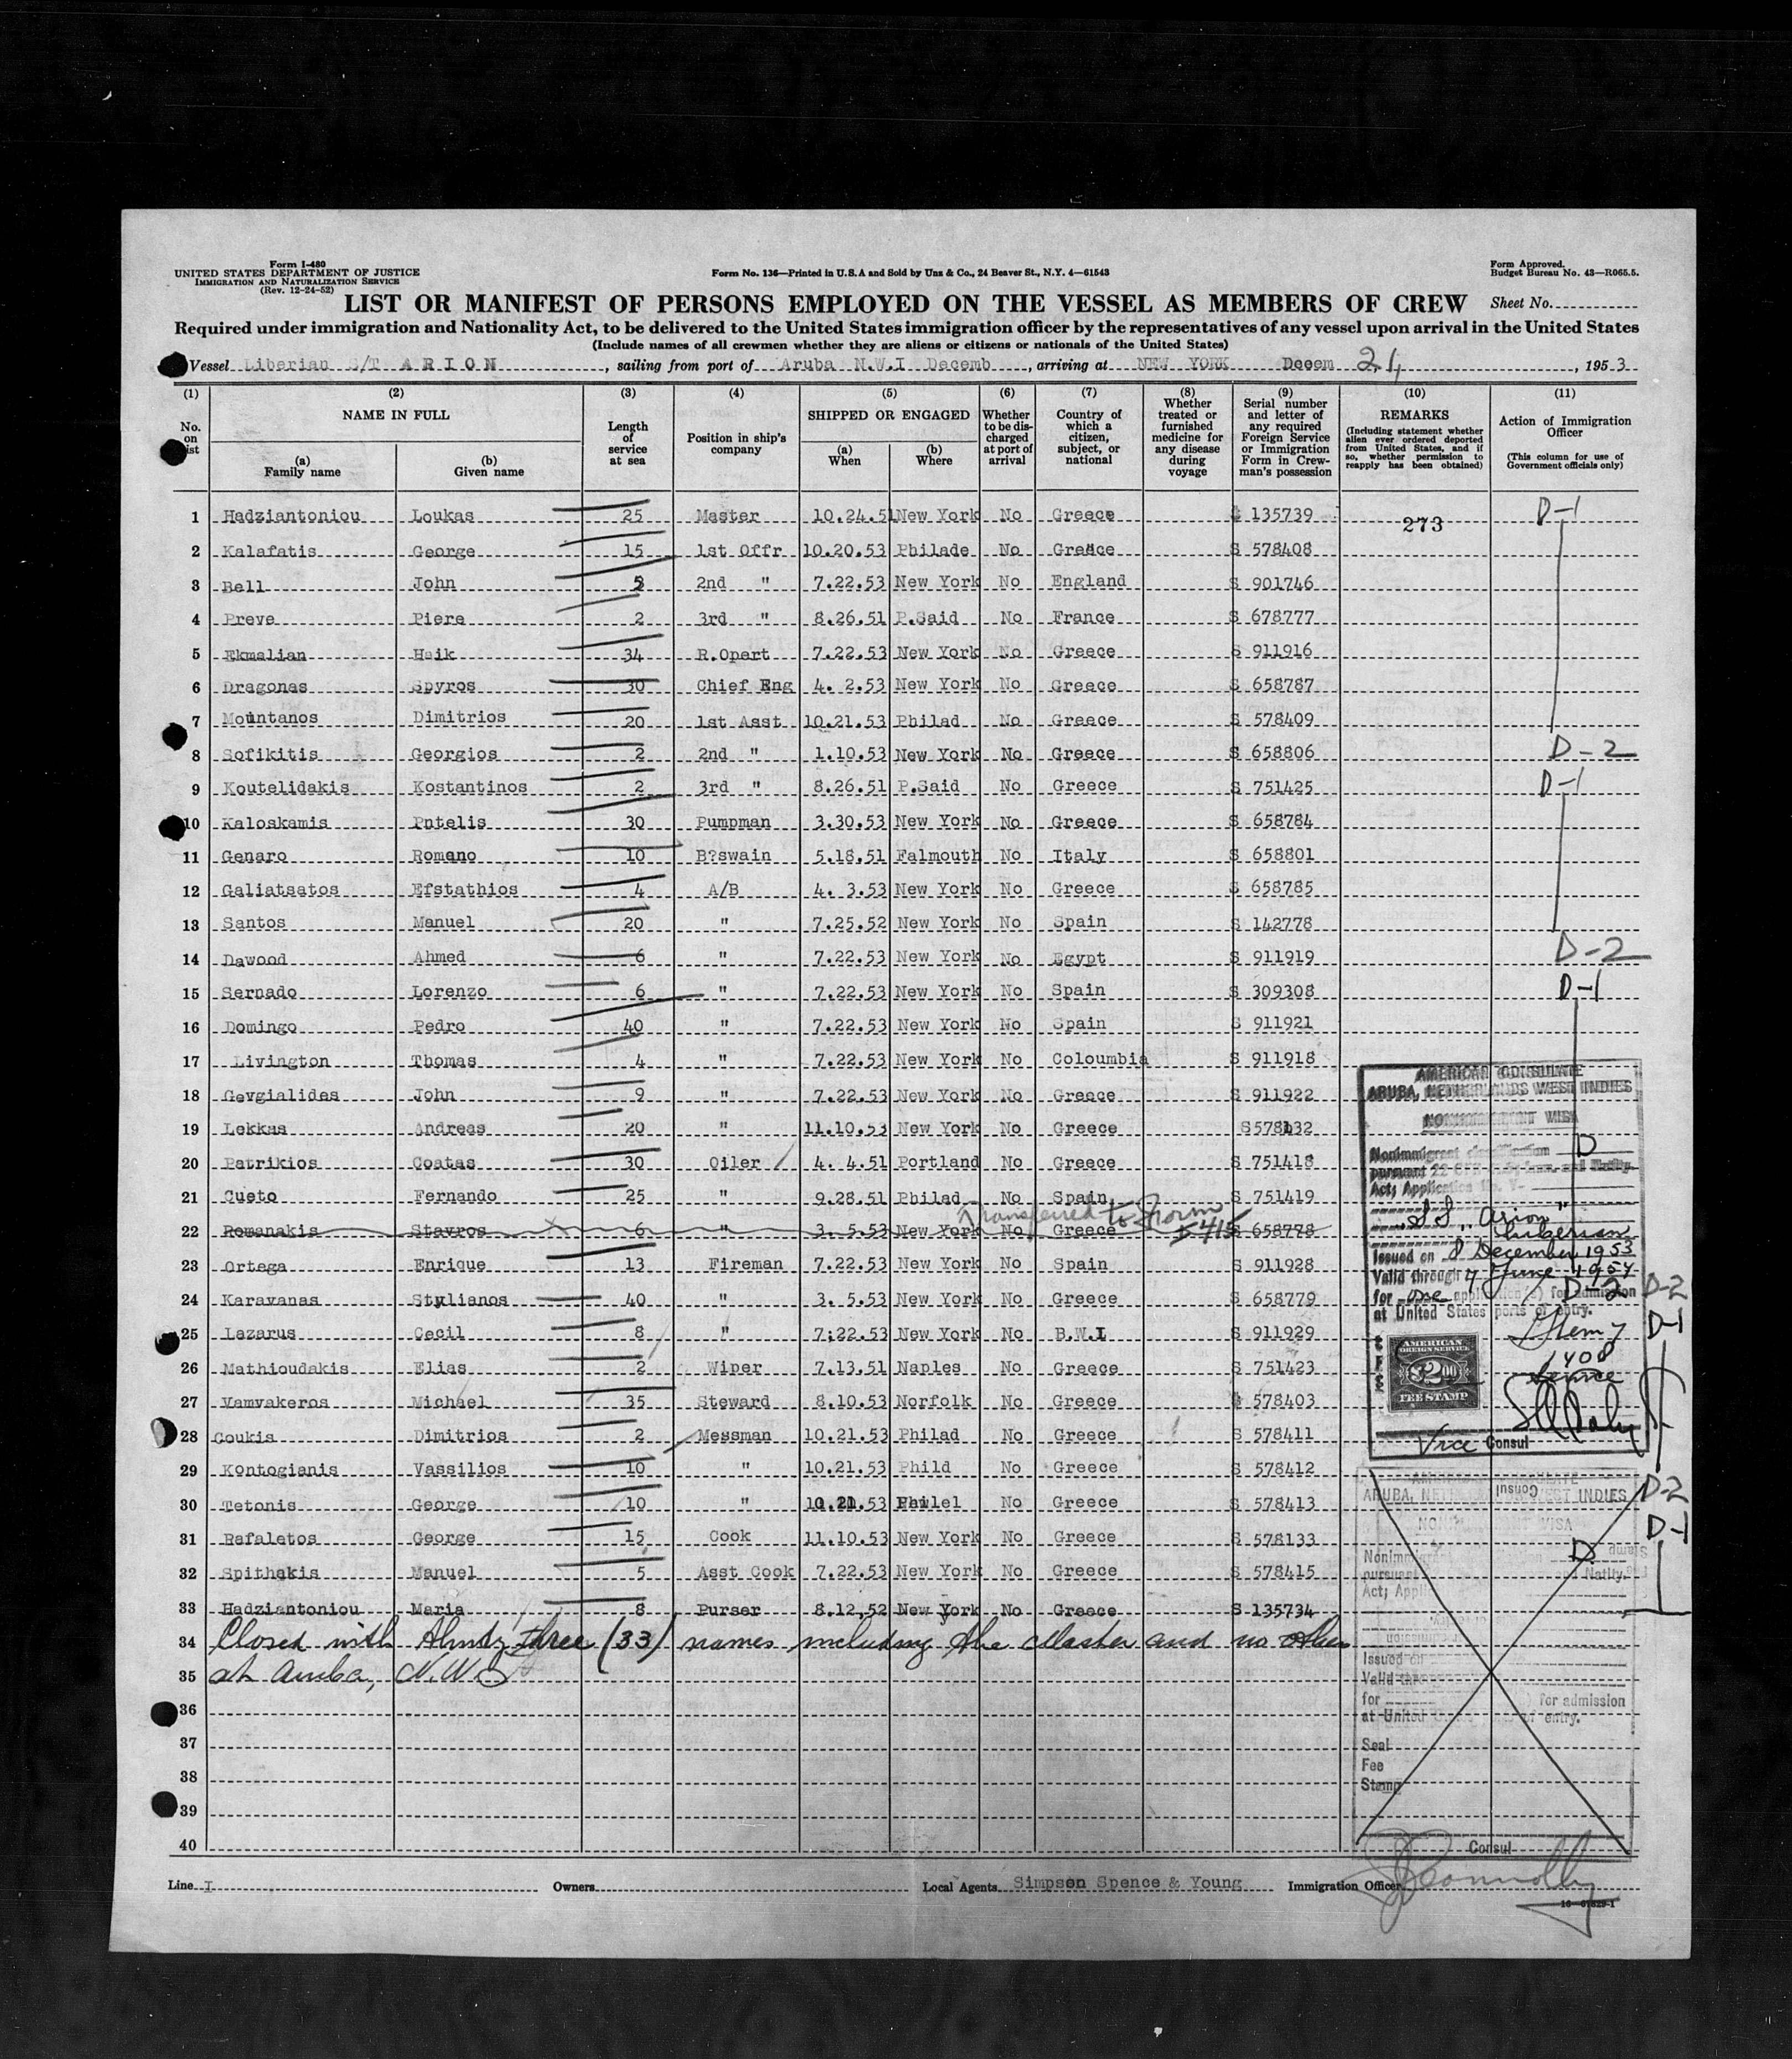 Form I-480
UNITED STATES DEPARTMENT OF JUSTICE
IMMIGRATION AND NATURALIZATION SERVICE
(Rev. 12-24-52)
Form No. 136—Printed in U.S.A and Sold by Unz & Co., 24 Beaver St., N.Y. 4—61543
Form Approved.
Budget Bureau No. 43—R065.5.
LIST OR MANIFEST OF PERSONS EMPLOYED ON THE VESSEL AS MEMBERS OF CREW Sheet No.
Required under immigration and Nationality Act, to be delivered to the United States immigration officer by the representatives of any vessel upon arrival in the United States
(Include names of all crewmen whether they are aliens or citizens or nationals of the United States)
Vessel Liberian S/T ARION, sailing from port of Aruba N.W.I Decemb, arriving at NEW YORK Decem 21, 1953
(1) No. on list
(2) NAME IN FULL (a) Family name (b) Given name
(3) Length of service at sea
(4) Position in ship's company
(5) SHIPPED OR ENGAGED (a) When (b) Where
(6) Whether to be discharged at port of arrival
(7) Country of which a citizen, subject, or national
(8) Whether treated or furnished medicine for any disease during voyage
(9) Serial number and letter of any required Foreign Service or Immigration Form in Crewman's possession
(10) REMARKS (Including statement whether alien ever ordered deported from United States, and if so, whether permission to reapply has been obtained)
(11) Action of Immigration Officer (This column for use of Government officials only)
1 Hadziantoniou Loukas 25 Master 10.24.51 New York No Greece 135739 273 D-1
2 Kalafatis George 15 1st Offr 10.20.53 Philade No Greece S 578408
3 Bell John 5 2nd " 7.22.53 New York No England S 901746
4 Preve Piere 2 3rd " 8.26.51 P.Said No France S 678777
5 Ekmalian Haik 34 R.Opert 7.22.53 New York No Greece S 911916
6 Dragonas Spyros 30 Chief Eng 4. 2.53 New York No Greece S 658787
7 Mountanos Dimitrios 20 1st Asst 10.21.53 Philad No Greece S 578409
8 Sofikitis Georgios 2 2nd " 1.10.53 New York No Greece S 658806 D-2
9 Koutelidakis Kostantinos 2 3rd " 8.26.51 P.Said No Greece S 751425 D-1
10 Kaloskamis Pntelis 30 Pumpman 3.30.53 New York No Greece S 658784
11 Genaro Romano 10 B?swain 5.18.51 Falmouth No Italy S 658801
12 Galiatsatos Efstathios 4 A/B 4. 3.53 New York No Greece S 658785
13 Santos Manuel 20 " 7.25.52 New York No Spain S 142778
14 Dawood Ahmed 6 " 7.22.53 New York No Egypt S 911919 D-2
15 Sernado Lorenzo 6 " 7.22.53 New York No Spain S 309308 D-1
16 Domingo Pedro 40 " 7.22.53 New York No Spain S 911921
17 Livington Thomas 4 " 7.22.53 New York No Coloumbia S 911918
18 Gevgialides John 9 " 7.22.53 New York No Greece S 911922
19 Lekkas Andreas 20 " 11.10.53 New York No Greece S 578132
20 Patrikios Coatas 30 Oiler 4. 4.51 Portland No Greece S 751418
21 Cueto Fernando 25 " 9.28.51 Philad No Spain S 751419
Transferred to
22 Romanakis Stavros 6 " 3. 5.53 New York No Greece S 658778
23 Ortega Enrique 13 Fireman 7.22.53 New York No Spain S 911928
24 Karavanas Stylianos 40 " 3. 5.53 New York No Greece S 658779 D-2 D-2
25 Lazarus Cecil 8 " 7:22.53 New York No B.W.I S 911929 D-1
26 Mathioudakis Elias 2 Wiper 7.13.51 Naples No Greece S 751423
27 Vamvakeros Michael 35 Steward 8.10.53 Norfolk No Greece 578403
28 Coukis Dimitrios 2 Messman 10.21.53 Philad No Greece S 578411
29 Kontogianis Vassilios 10 " 10.21.53 Phild No Greece S 578412
30 Tetonis George 10 " 10.21.53 No Greece S 578413 D-2
31 Rafaletos George 15 Cook 11.10.53 New York No Greece S 578133 D-1
32 Spithakis Manuel 5 Asst Cook 7.22.53 New York No Greece S 578415
33 Hadziantoniou Maria 8 Purser 8.12.52 New York No Greece S 135734
34 Closed with thirty three (33) names including the Master and no other
35 at Aruba, N.W.I
36
37
38
39
40
AMERICAN CONSULATE
ARUBA, NETHERLANDS WEST INDIES
NONIMMIGRANT VISA
Nonimmigrant classification D
pursuant 22 CFR
Act; Application No. V-
"SS Arion"
Liberian
Issued on 8 December 1953
Valid through 7 June 1954
for one application(s) for admission
at United States ports of entry.
1408
AMERICAN
FOREIGN SERVICE
$2.00
FEE STAMP
Vice Consul
AMERICAN CONSULATE
ARUBA, NETHERLANDS WEST INDIES
VISA
Nonimmigrant D
pursuant Natlty.
Act; Appli
Issued on
Valid
for for admission
at United of entry.
Seal
Fee
Stamp
Consul
Line I Owners Local Agents Simpson Spence & Young Immigration Officer Connolly